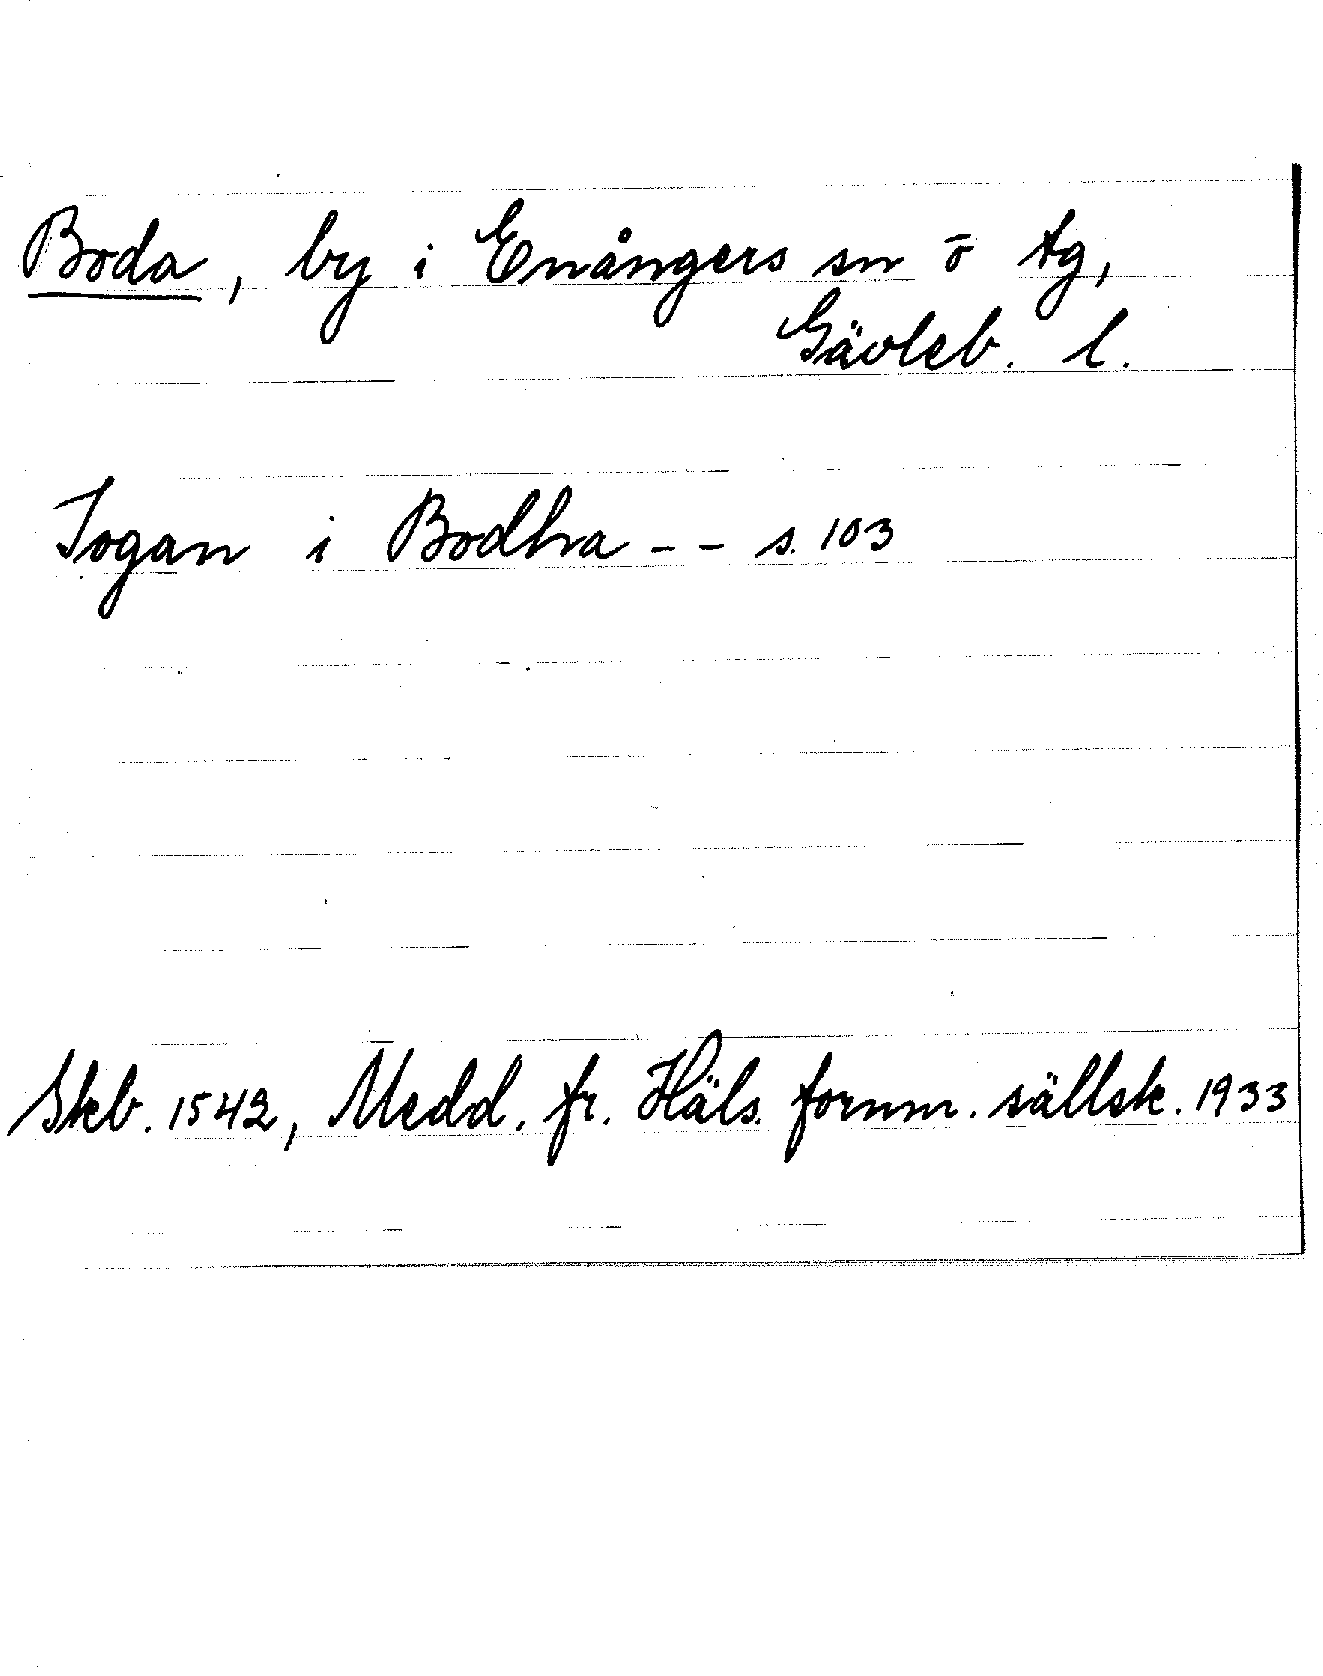 Boda, by i Enångers sn ō tg,
Gävleb. l.
Jogan i Bodha -- s. 103
Skb. 1542, Medd. fr. Häls. fornm. sällsk. 1933